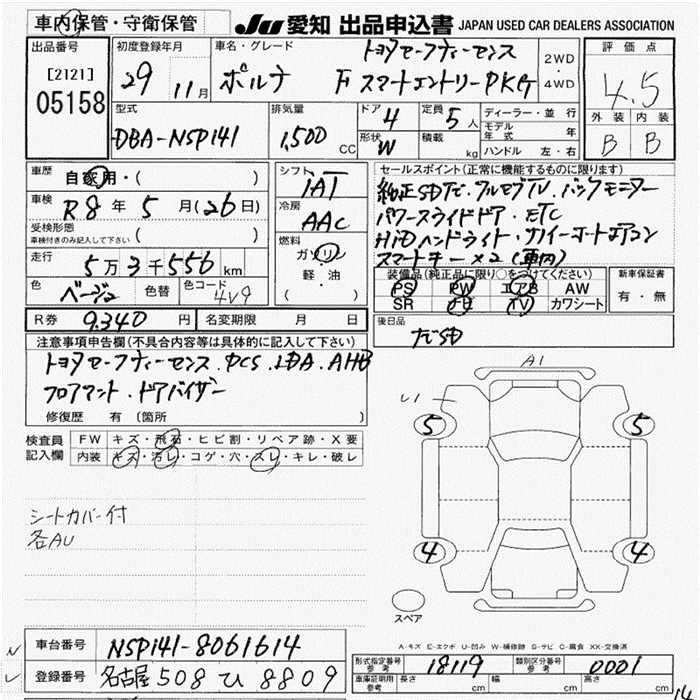 車内保管・守衛保管
JU 愛知 出品申込書 JAPAN USED CAR DEALERS ASSOCIATION
出品番号
[2121]
05158
初度登録年月
29 11月
車名・グレード
トヨタセーフティーセンス
ポルテ F スマートエントリーPKG
2WD
・
4WD
評価点
4.5
外装 内装
B B
型式
DBA-NSP141
排気量
1,500 CC
ドア 4
定員 5人
形状 W
積載 kg
ディーラー・並行
モデル年式 年
ハンドル 左・右
車歴
自家用・( )
車検
R8年 5月(26日)
受検形態
車検付きのみ記入して下さい ( )
走行
5万3千556km
色
ベージュ
色替
色コード
4V9
シフト
IAT
冷房
AAC
燃料
ガソリン
軽・油
( )
セールスポイント(正常に機能するものに限ります)
純正SDナビ・フルセグTV・バックモニター
パワースライドドア・ETC
HiDヘッドライト・
スマートキー×2(車内)
装備品(純正品に限り○をつけてください)
PS PW エアB AW
SR ナビ TV カワシート
新車保証書
有・無
R券 9.340円
名変期限 月 日
後日品
ナビSD
注意事項申告欄(不具合内容等は具体的に記入して下さい)
トヨタセーフティーセンス.PCS.LDA.AHB
フロアマット・ドアバイザー
修復歴 有〔箇所 〕
検査員
記入欄
FW キズ・飛石・ヒビ割・リペア跡・X要
内装 キズ・汚レ・コゲ・穴・スレ・キレ・破レ
シートカバー付
各AU
A1
5 5
4 4
スペア
A-キズ E-エクボ U-凹み W-補修跡 S-サビ C-腐食 XX-交換済
車台番号 NSP141-8061614
登録番号 名古屋 508 ひ 8809
形式指定番号
参考
18119
類別区分番号
参考
0001
車庫証明用
参考
長さ cm 幅 cm 高さ cm
14